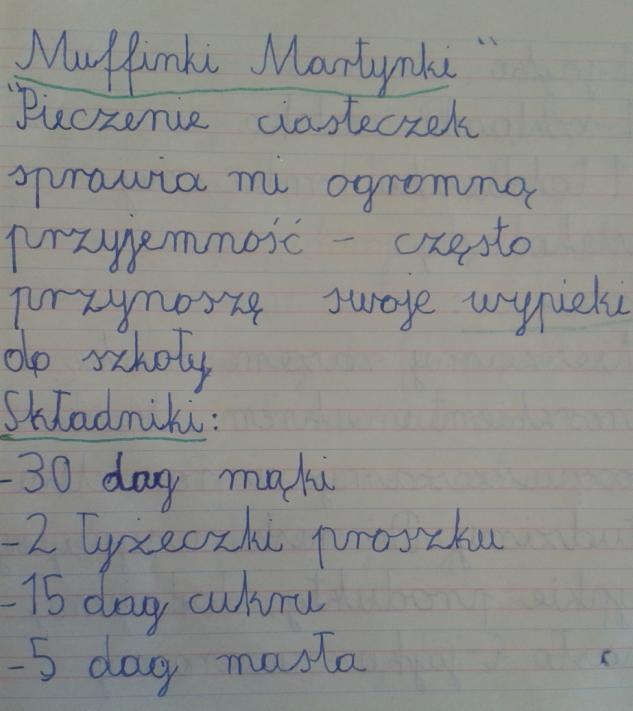 Muffinki Martynki"
"Pieczenie ciasteczek
sprawia mi ogromną
przyjemność - często
przynoszę swoje wypieki
do szkoły
Składniki:
-30 dag mąki
-2 łyżeczki proszku
-15 dag cukru
-5 dag masła